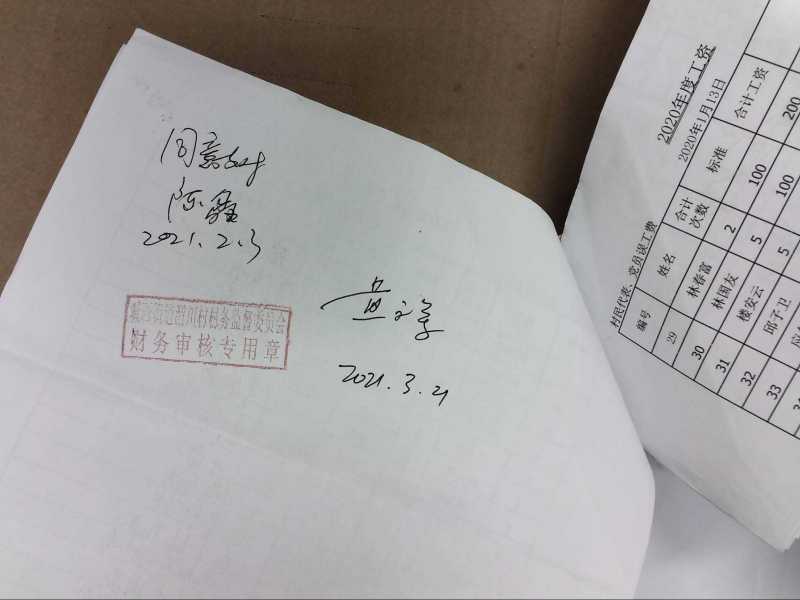 同意支付
陈鑫
2021.2.3
村务监督委员会
财务审核专用章
2021.3.21
2020年度工资
2020年1月13日
村民代表、党员误工费
编号 姓名 合计次数 标准 合计工资
29 林春富 2 100 200
30 林国友 5 100
31 楼安云 5
32 邱子卫
33